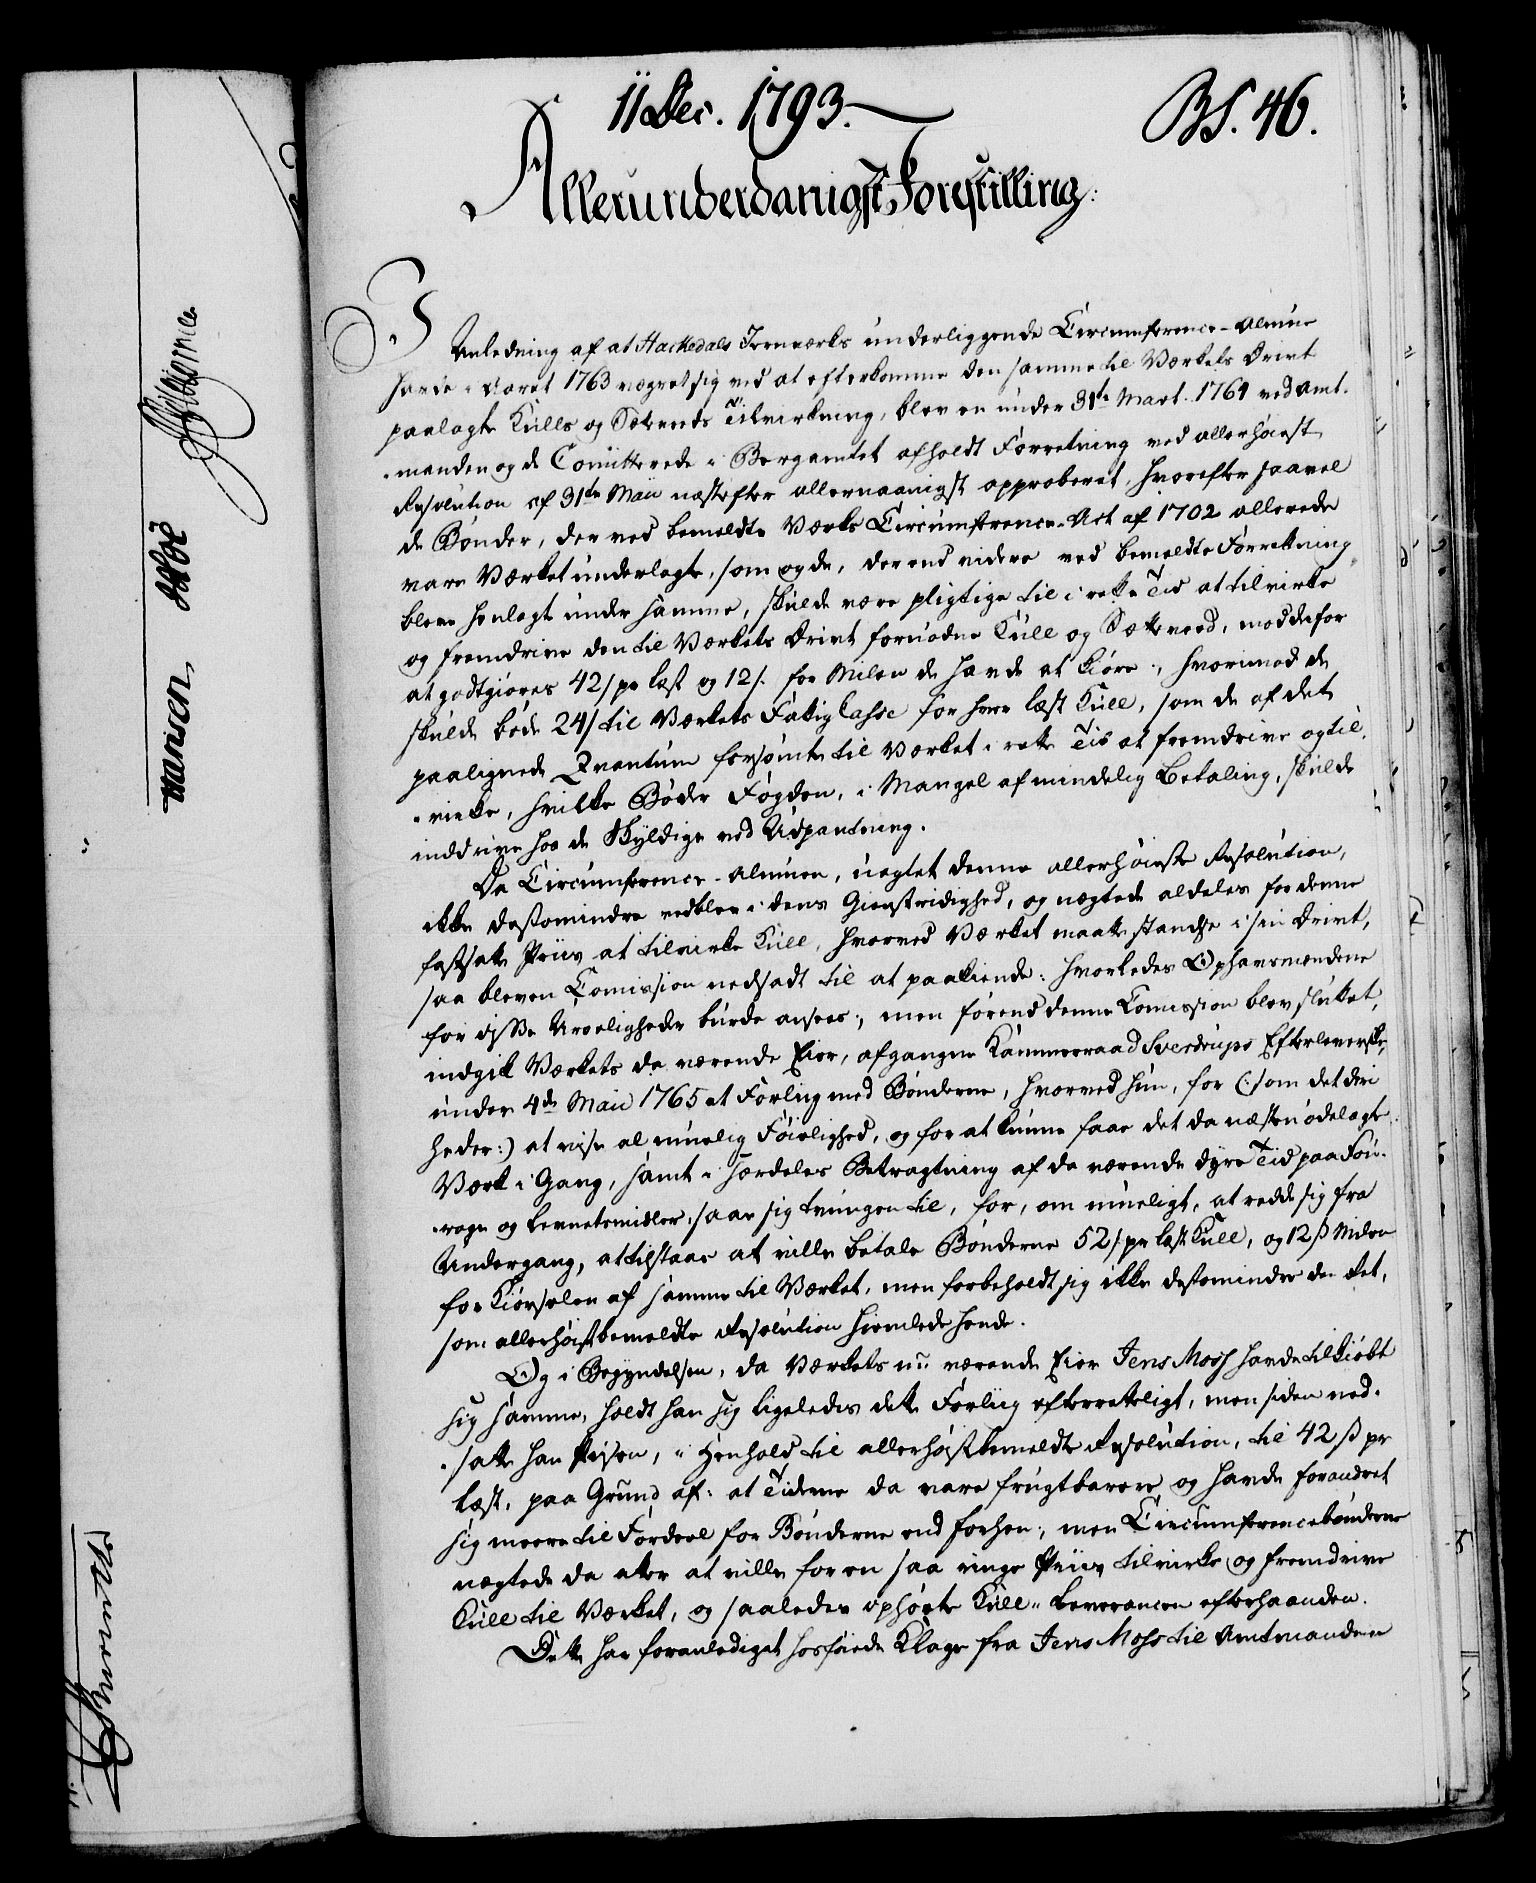 11 Dec. 1793.
BS. 46.
Allerunderdanigst Forestilling:
I Anledning af at Hackedals Jernværks underliggende Circumference-Almue
havde i Aaret 1763 vægret sig ved at efterkomme den samme til Værkets Drivt
paalagte Kulls og Sætveds Tilvirkning, blev en under 31te Mart. 1764 ved Amt-
manden og de Comitterede i Bergamtet afholdt Forretning ved allerhøiest
Resolution af 31te Maii næstefter allernaadigst approberet, hvorefter saavel
de Bønder, der ved bemeldte Værks Circumference-Act af 1702 allerede
vare Værket underlagte, som og de, der end videre ved bemeldte Forretning
bleve henlagt under samme, skulde være pligtige til i rette Tid at tilvirke
og fremdrive den til Værkets Drivt fornødne Kull og Sætteved, mod derfor
at godtgiøres 42/ pr læst og 12/. for Milen de havde at kiøre:, hvorimod de
skulde bøde 24/ til Værkets Fattig Casse for hver læst Kull, som de af det
paalignede Qvantum forsømte til Værket i rette Tid at fremdrive og til-
virke, hvilke Bøder Fogden, i Mangel af mindelig Betaling, skulde
inddrive hos de Skyldige ved Udpantning.
Da Circumference-Almuen, uagtet denne allerhøieste Resolution,
ikke destomindre vedblev i dens Gienstridighed, og nægtede aldeles for denne
fastsatte Priis at tilvirke Kull, hvorved Værket maatte standse i sin Drivt,
saa blev en Comission nedsadt til at paakiende: hvorledes Ophavsmændene
for disse Uroeligheder burde ansees:, men førend denne Comission blev sluttet,
indgik Værkets da værende Eier, afgangne Kammerraad Sverdrups Efterleverske,
under 4de Maii 1765 et Forliig med Bønderne, hvorved hun, for (:som det deri
heder:) at vise al muelig Føielighed, og for at kunne faae det da næsten ødelagte
Værk i Gang, samt i særdeles Betragtning af da værende dyre Tid paa Fou-
rage og Levnetsmidler, saae sig tvungen til, for, om mueligt, at redde sig fra
Undergang, at tilstaae at ville betale Bønderne 52/ pr læst Kull, og 12 ß Milen
for Kiørselen af samme til Værket, men forbeholdt sig ikke destomindre den Ret,
som allerhøistbemeldte Resolution hiemlede hende.
Og i Begyndelsen, da Værkets nu værende Eier Jens Moss havde tilkiøbt
sig samme, holdt han sig ligeledes dette Forliig efterretteligt, men siden ned-
satte han Prisen, i Henhold til allerhøistbemeldte Resolution, til 42 ß pr
læst, paa Grund af: at Tiderne da vare frugtbarere og havde forandret
sig meere til Fordeel for Bønderne end forhen:, men Circumferencebønderne
nægtede da atter at ville for en saa ringe Priis tilvirke og fremdrive
Kull til Værket, og saaledes ophørte Kull-Leverancen efterhaanden.
Dette har foranlediget hosføiede Klage fra Jens Moss til Amtmanden